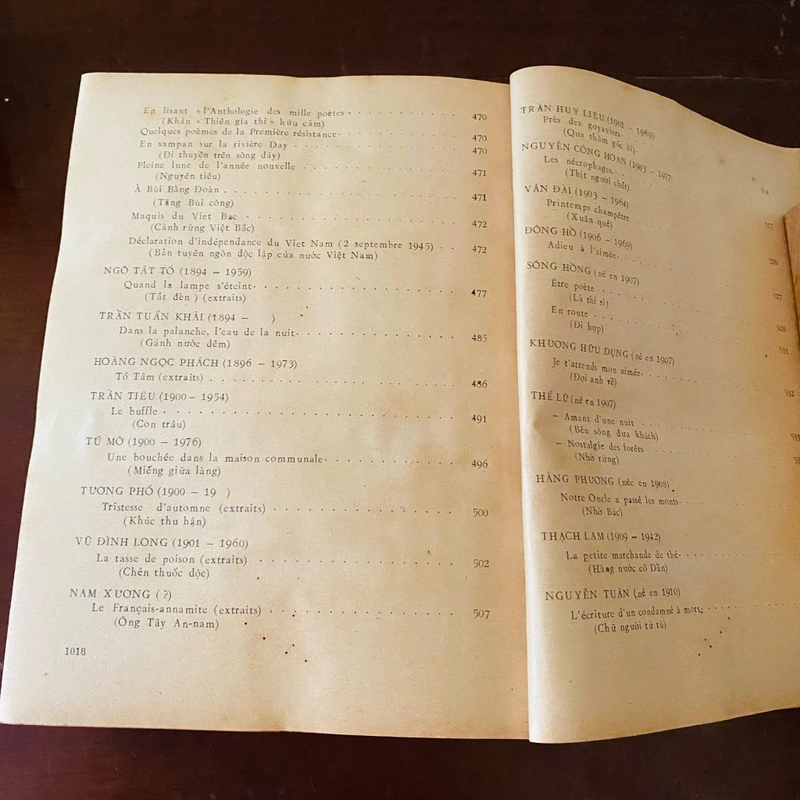 En lisant «l'Anthologie des mille poètes» . . . . . . . 470
(Khán « Thiên gia thi » hữu cảm)
Quelques poèmes de la Première résistance . . . . . . . 470
En sampan sur la rivière Day . . . . . . . 470
(Đi thuyền trên sông đáy)
Pleine lune de l'année nouvelle . . . . . . . 471
(Nguyên tiêu)
À Bùi Bằng Đoàn . . . . . . . 471
(Tặng Bùi công)
Maquis du Viet Bac . . . . . . . 472
(Cảnh rừng Việt Bắc)
Déclaration d'indépendance du Viet Nam (2 septembre 1945) . . 472
(Bản tuyên ngôn độc lập của nước Việt Nam)
NGÔ TẤT TỐ (1894 – 1959)
Quand la lampe s'éteint . . . . . . . 477
(Tắt đèn) (extraits)
TRẦN TUẤN KHẢI (1894 – )
Dans la palanche, l'eau de la nuit . . . . . . . 485
(Gánh nước đêm)
HOÀNG NGỌC PHÁCH (1896 – 1973)
Tố Tâm (extraits) . . . . . . . 486
TRẦN TIÊU (1900 – 1954)
Le buffle . . . . . . . 491
(Con trâu)
TÚ MỠ (1900 – 1976)
Une bouchée dans la maison communale . . . . . . . 496
(Miếng giữa làng)
TƯƠNG PHỐ (1900 – 19 )
Tristesse d'automne (extraits) . . . . . . . 500
(Khúc thu hận)
VŨ ĐÌNH LONG (1901 – 1960)
La tasse de poison (extraits) . . . . . . . 502
(Chén thuốc độc)
NAM XƯƠNG (?)
Le Français-annamite (extraits) . . . . . . . 507
(Ông Tây An-nam)
1018
TRẦN HUY LIỆU (1901 – 1969)
Près des goyaviers
(Qua thăm gốc ổi)
NGUYỄN CÔNG HOAN (1903 – 1977)
Les nécrophages
(Thịt người chết)
VÂN ĐÀI (1903 – 1964)
Printemps champêtre
(Xuân quê)
ĐÔNG HỒ (1906 – 1969)
Adieu à l'aimée
SÓNG HỒNG (né en 1907)
Être poète
(Là thi sĩ)
En route
(Đi họp)
KHƯƠNG HỮU DỤNG (né en 1907)
Je t'attends mon aimée
(Đợi anh về)
THẾ LỮ (né en 1907)
– Amant d'une nuit
(Bên sông đưa khách)
– Nostalgie des forêts
(Nhớ rừng)
HẰNG PHƯƠNG (née en 1908)
Notre Oncle a passé les monts
(Nhớ Bác)
THẠCH LAM (1909 – 1942)
La petite marchande de thé
(Hàng nước cô Dần)
NGUYỄN TUÂN (né en 1910)
L'écriture d'un condamné à mort
(Chữ người tử tù)